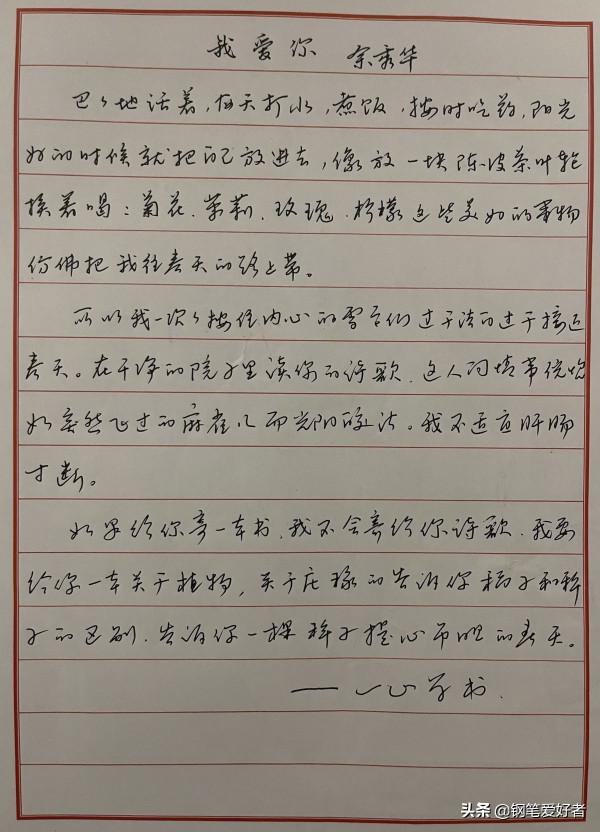 我爱你 余秀华
巴巴地活着,每天打水,煮饭,按时吃药,阳光
好的时候就把自己放进去,像放一块陈皮茶叶轮
换着喝:菊花.茉莉.玫瑰.柠檬这些美好的事物
仿佛把我往春天的路上带。
所以我一次次按住内心的雪它们过于洁白过于接近
春天。在干净的院子里读你的诗歌.这人间情事恍惚
如突然飞过的麻雀儿而光阴皎洁。我不适宜肝肠
寸断。
如果给你寄一本书.我不会寄给你诗歌.我要
给你一本关于植物,关于庄稼的告诉你稻子和稗
子的区别.告诉你一棵稗子提心吊胆的春天。
——一心学书.
头条 @钢笔爱好者